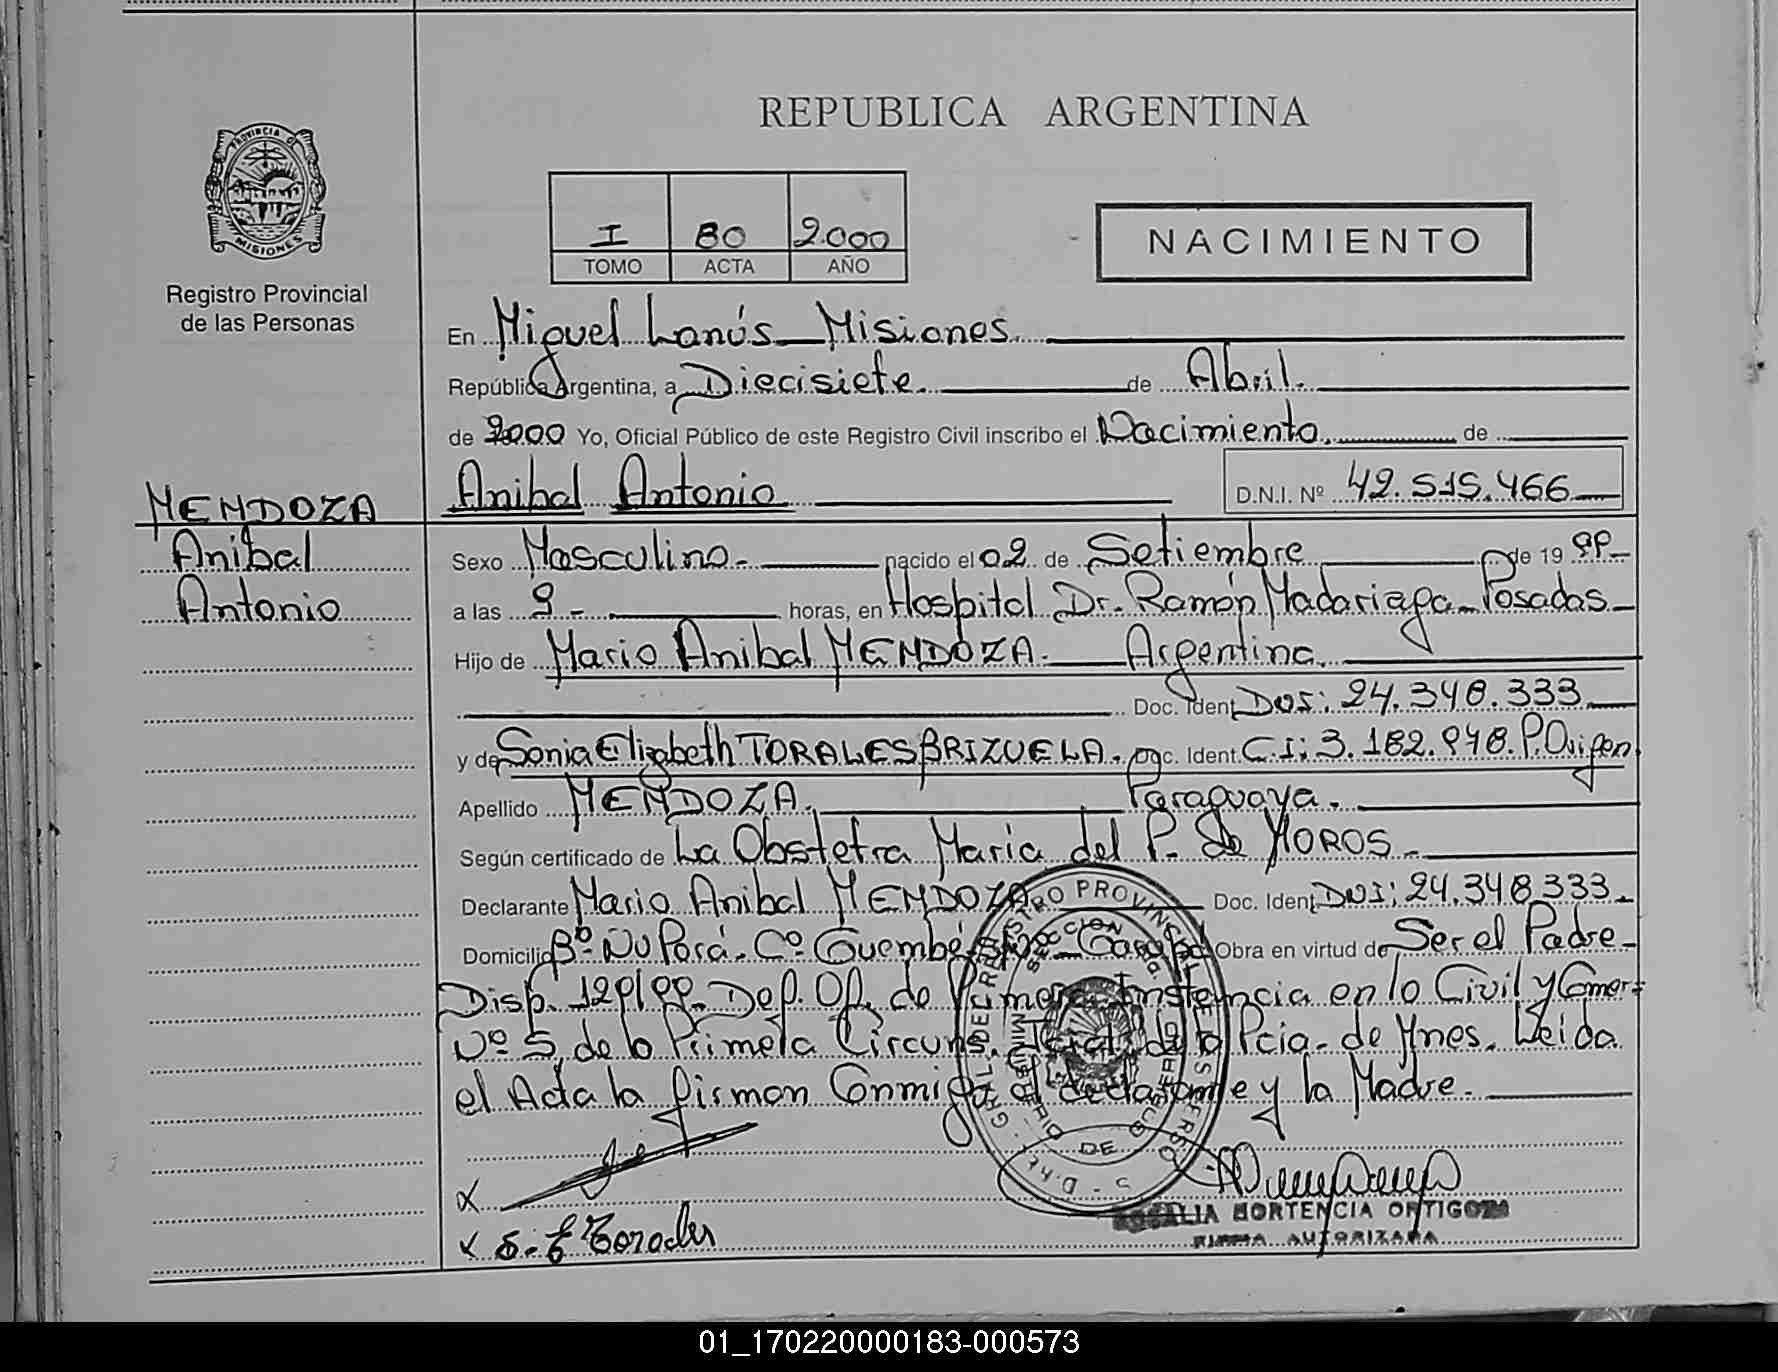 REPUBLICA ARGENTINA
PROVINCIA DE
MISIONES
Registro Provincial
de las Personas
I 80 2.000
TOMO ACTA AÑO
NACIMIENTO
En Miguel Lanús Misiones
República Argentina, a Diecisiete de Abril.
de 2000 Yo, Oficial Público de este Registro Civil inscribo el Nacimiento. de
Anibal Antonio D.N.I. Nº 42.515.466
MENDOZA
Anibal
Antonio
Sexo Masculino. nacido el 02 de Setiembre de 1999
a las 9.- horas, en Hospital Dr. Ramón Madariaga Posadas
Hijo de Mario Anibal MENDOZA. Argentina.
Doc. Ident. 24.348.333
y de Sonia Elizabeth TORALES BRIZUELA. Doc. Ident. C.I: 3.182.948. P. Origen
Apellido MENDOZA. Paraguaya.
Según certificado de La Obstetra Maria del P. de MOROS
Declarante Mario Anibal MENDOZA Doc. Ident. 24.348.333.
Domicilio Bº Ñu Porá. Cº Guembé Obra en virtud de Ser el Padre
Disp. 129/99. Def. Of. de Primera Instancia en lo Civil y Comer=
Nº 5, de la Primera Circuns. de la Pcia. de Mnes. Leida
el Acta la firman Conmigo el declarante y la Madre.
S. E Torales
HORTENCIA ORTIGOZA
FIRMA AUTORIZADA
01_170220000183-000573